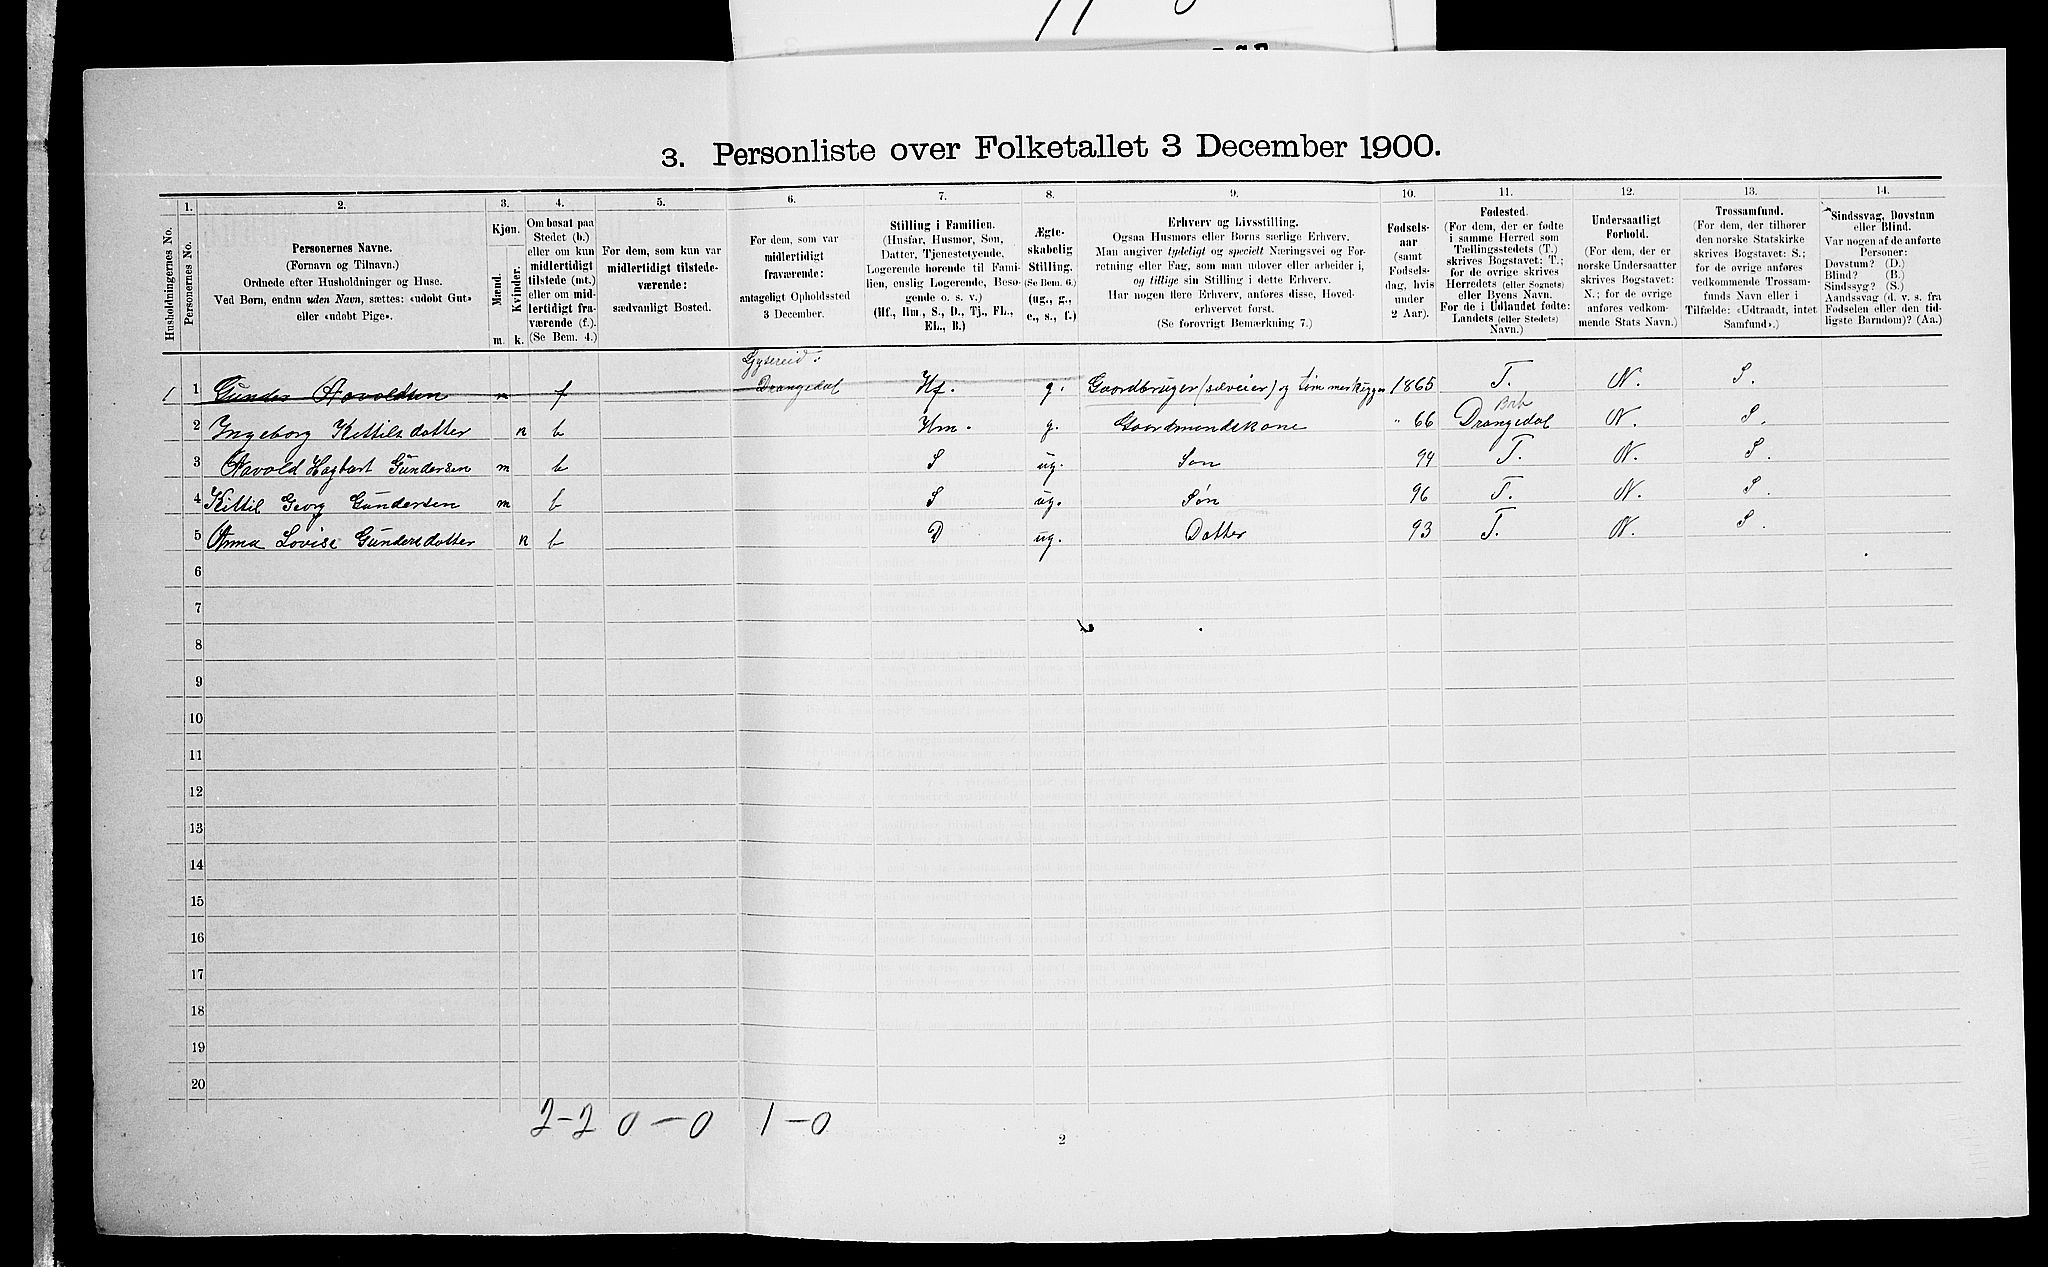 3. Personliste over Folketallet 3 December 1900.
1. 2. 3. 4. 5. 6. 7. 8. 9. 10. 11. 12. 13. 14.
Husholdningernes No.
Personernes No.
Personernes Navne.
(Fornavn og Tilnavn.)
Ordnede efter Husholdninger og Huse.
Ved Børn, endnu uden Navn, sættes: «udøbt Gut»
eller «udøbt Pige».
Kjøn.
Mænd.
Kvinder.
m. k.
Om bosat paa
Stedet (b.)
eller om kun
midlertidigt
tilstede (mt.)
eller om mid-
lertidigt fra-
værende (f.).
(Se Bem. 4.)
For dem, som kun var
midlertidigt tilstede-
værende:
sædvanligt Bosted.
For dem, som var
midlertidigt
fraværende:
antageligt Opholdssted
3 December.
Stilling i Familien.
(Husfar, Husmor, Søn,
Datter, Tjenestetyende,
Logerende hørende til Fami-
lien, enslig Logerende, Besø-
gende o. s. v.)
(Hf., Hm., S., D., Tj., FL.,
EL., B.)
Ægte-
skabelig
Stilling.
(Se Bem. 6.)
(ug., g.,
e., s., f.)
Erhverv og Livsstilling.
Ogsaa Husmors eller Børns særlige Erhverv.
Man angiver tydeligt og specielt Næringsvei og For-
retning eller Fag, som man udøver eller arbeider i,
og tillige sin Stilling i dette Erhverv.
Har nogen flere Erhverv, anføres disse, Hoved-
erhvervet først.
(Se forøvrigt Bemærkning 7.)
Fødsels-
aar
(samt
Fødsels-
dag, hvis
under
2 Aar).
Fødested.
(For dem, der er fødte
i samme Herred som
Tællingsstedets (T.)
skrives Bogstavet: T.;
for de øvrige skrives
Herredets (eller Sognets)
eller Byens Navn.
For de i Udlandet fødte:
Landets (eller Stedets)
Navn.)
Undersaatligt
Forhold.
(For dem, der er
norske Undersaatter
skrives Bogstavet:
N.; for de øvrige
anføres vedkom-
mende Stats Navn.)
Trossamfund.
(For dem, der tilhører
den norske Statskirke
skrives Bogstavet: S.;
for de øvrige anføres
vedkommende Trossam-
funds Navn eller i
Tilfælde: «Udtraadt, intet
Samfund».)
Sindssvag, Døvstum
eller Blind.
Var nogen af de anførte
Personer:
Døvstum? (D.)
Blind? (B.)
Sindssyg? (S.)
Aandssvag (d. v. s. fra
Fødselen eller den tid-
ligste Barndom)? (Aa.)
Gysereid:
1 1 Gunder Aavoldsen m f Drangedal Hf. g. Gaardbruger (selveier) og tømmerhugger 1865 T. N. S.
2 Ingeborg Kittilsdatter k b Hm. g. Gaardmandskone " 66 Drangedal N. S.
3 Aavold Hagbart Gundersen m b S ug. Søn 94 T. N. S.
4 Kittil Georg Gundersen m b S ug. Søn 96 T. N. S.
5 Anna Lovise Gundersdatter k b D ug. Datter 93 T. N. S.
6
7
8
9
10
11
12
13
14
15
16
17
18
19
20
2-2 0-0 1-0
2